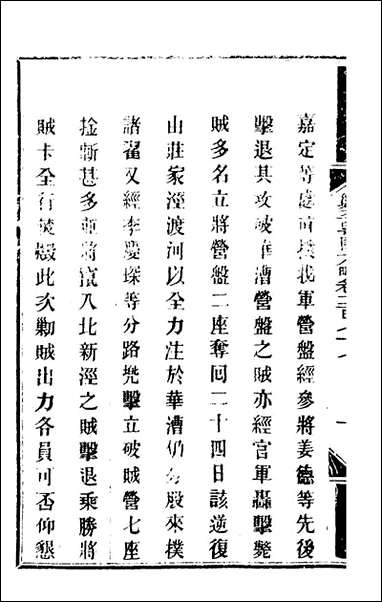 嘉定等處直撲我軍營盤經參將姜德等先後
擊退其攻破華漕營盤之賊亦經官軍轟擊斃
賊多名立將營盤二座奪回二十四日該逆復
山莊家涇渡河以全力注於華漕仍分股來撲
諸翟又經李慶琛等分路兜擊立破賊營七座
擒斬甚多並將竄入北新涇之賊擊退乘勝將
賊卡全行焚燬此次勦賊出力各員可否仰懇